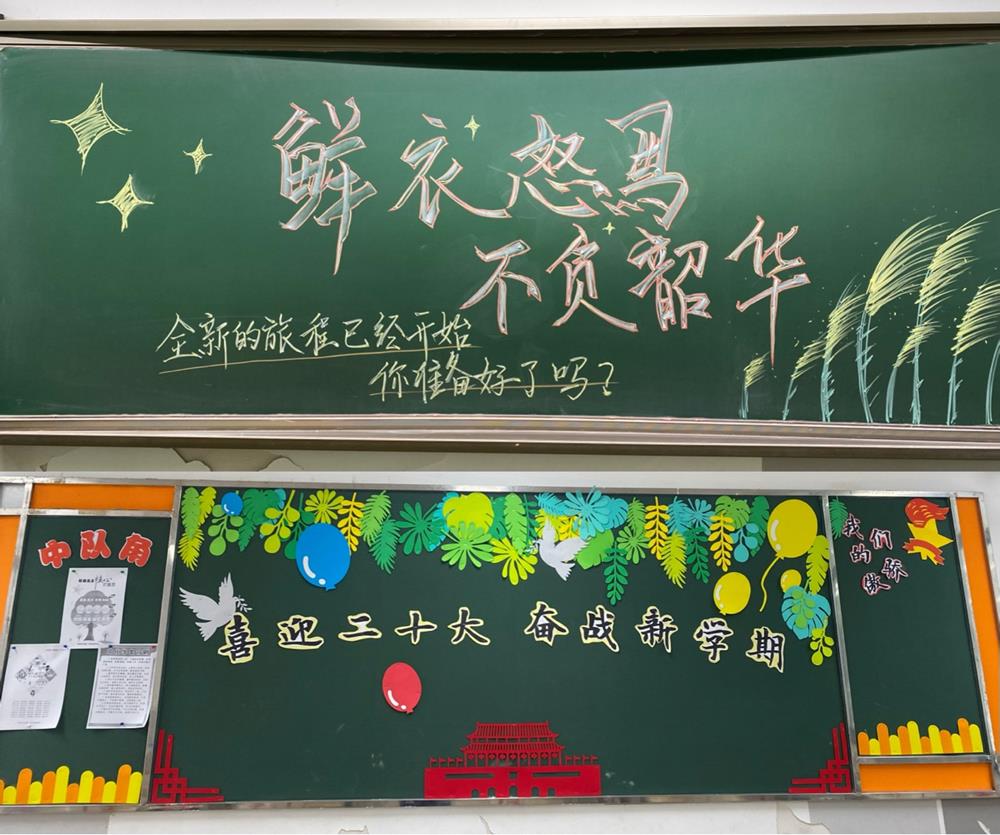 鲜衣怒马
不负韶华
全新的旅程已经开始
你准备好了吗?
中队角
喜迎二十大 奋战新学期
我们
的骄
傲